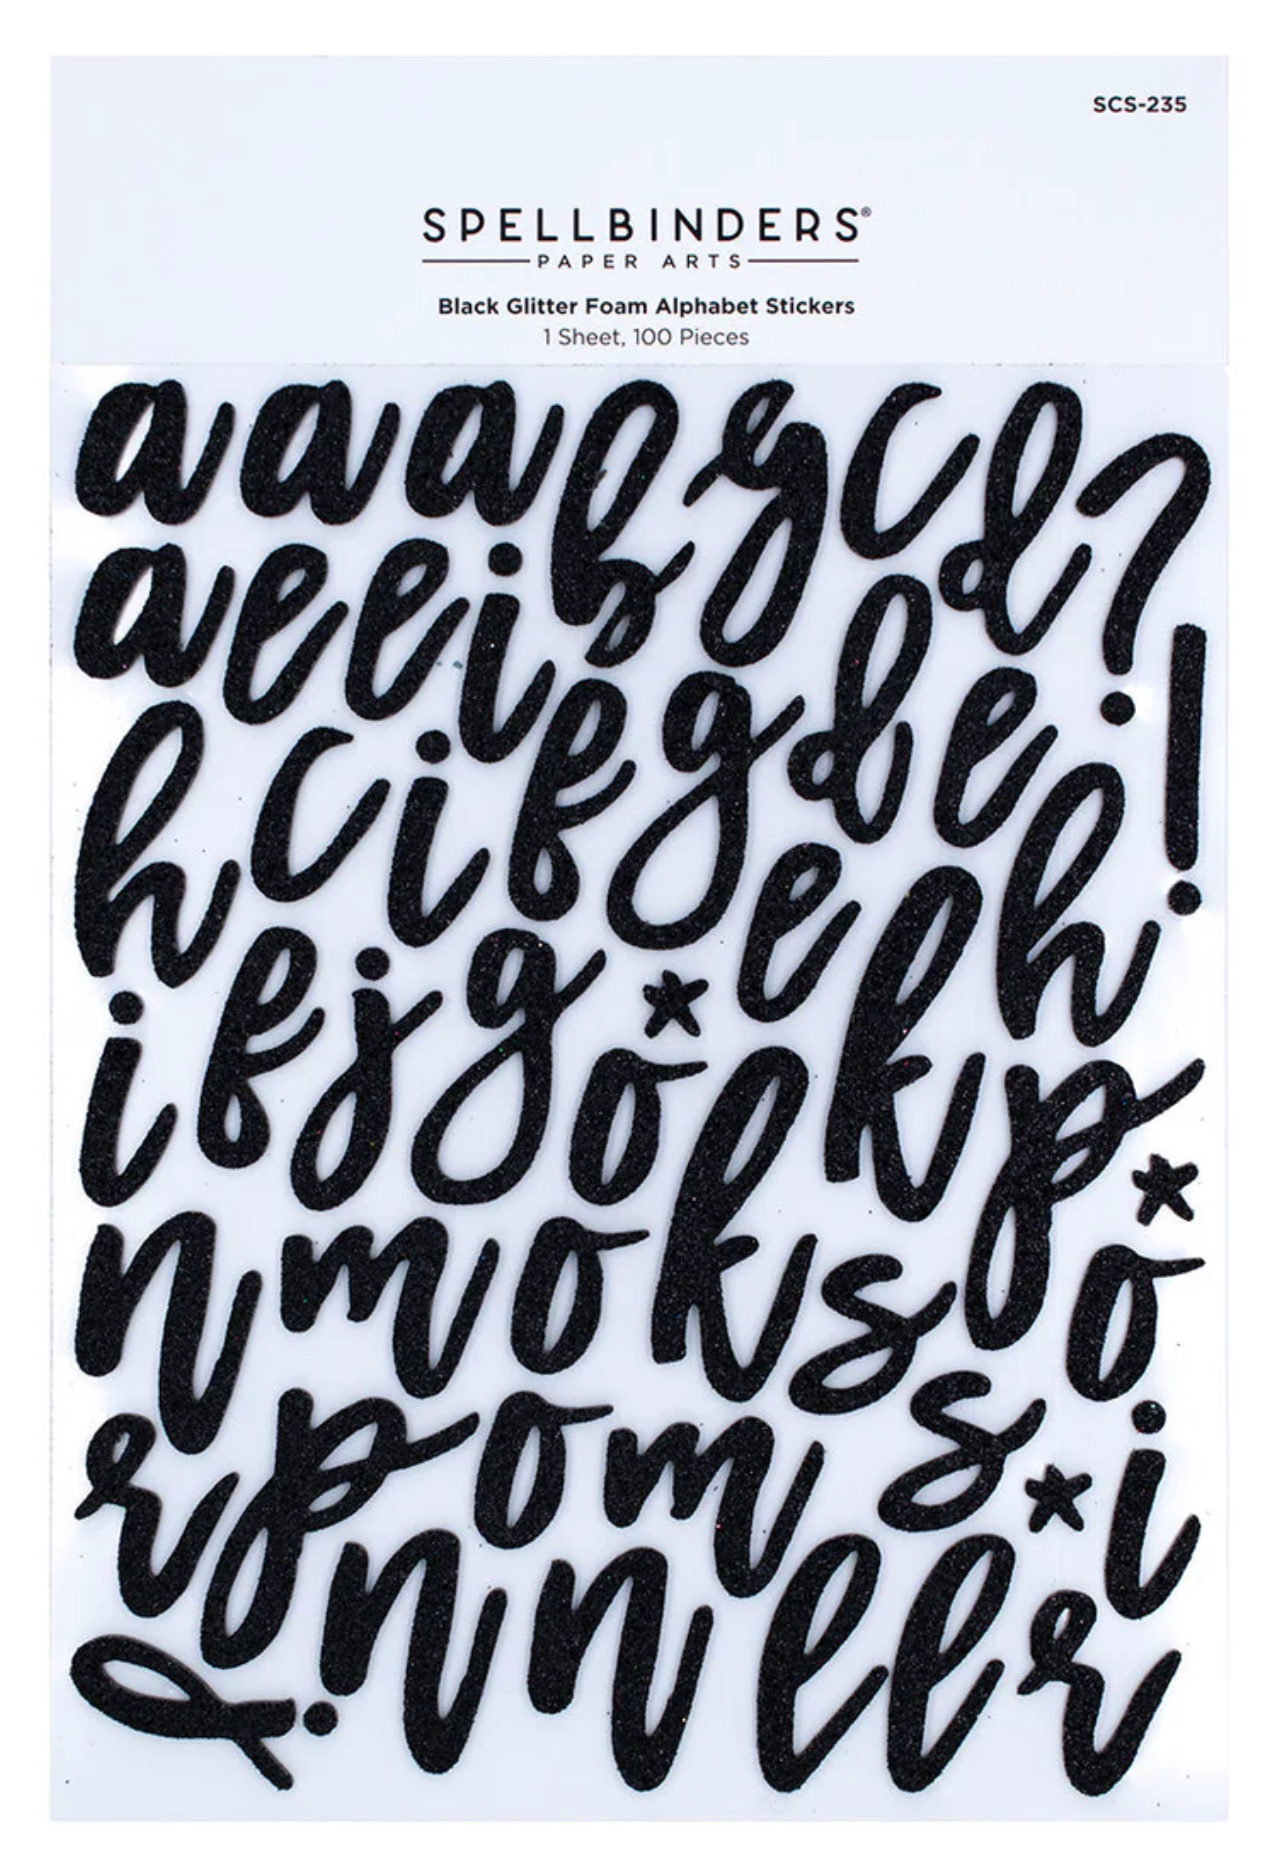 SCS-235
SPELLBINDERS®
PAPER ARTS
Black Glitter Foam Alphabet Stickers
1 Sheet, 100 Pieces
a a a b y c d ?
a e e i f g d e !
h c i f g e k h
i f j g * o k p *
n m o s o
r p o m s * i
j n n l l r